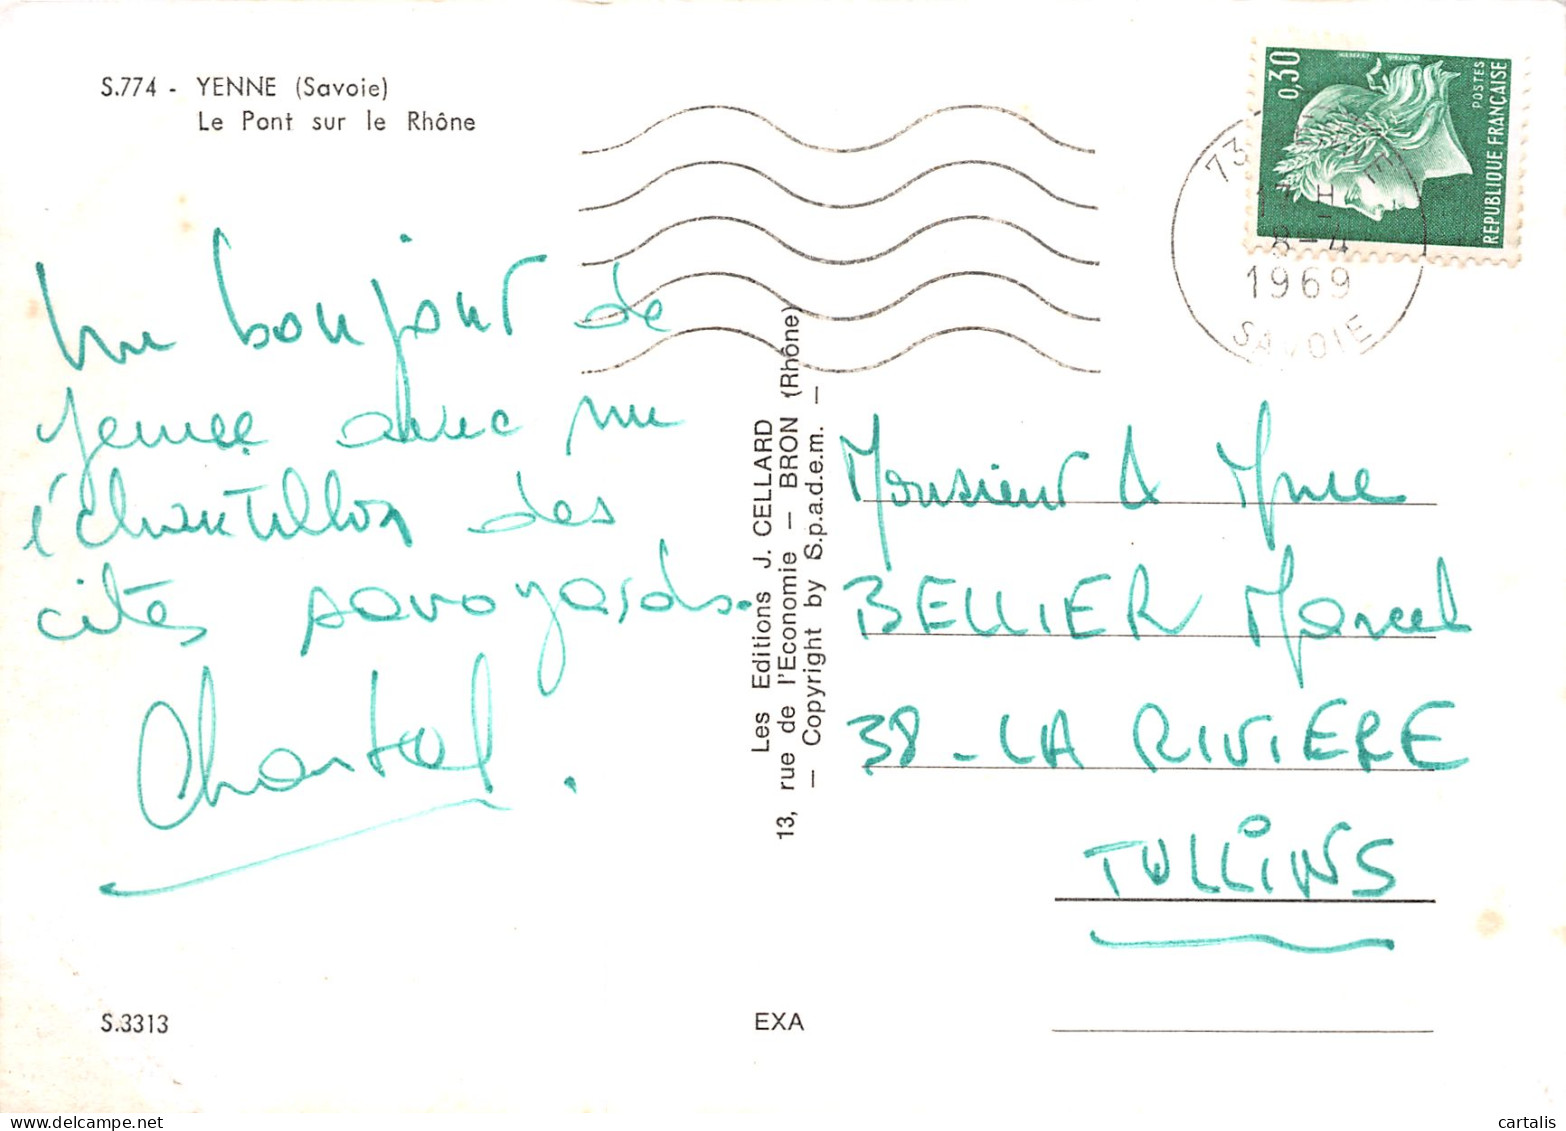 S.774 - YENNE (Savoie)
Le Pont sur le Rhône
Un bonjour de
Yenne avec un
échantillon des
cités savoyards.
Chantal.
S.3313
Les Editions J. CELLARD
13, rue de l'Economie - BRON (Rhône)
- Copyright by S.p.a.d.e.m. -
EXA
0,30
POSTES
REPUBLIQUE FRANÇAISE
73
17 H
8-4
1969
SAVOIE
Monsieur & Mme
BELLIER Marcel
38 - LA RIVIERE
TULLINS
cartalis